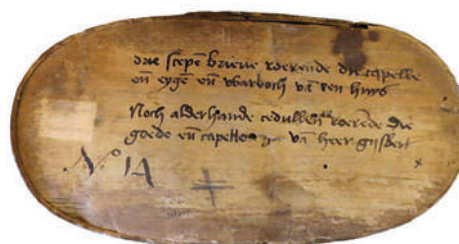 drie scepen brieve roerende die capelle
en eygen en warboch va een huys
Noch alderhande cedullen roerende die
goede en capelle va heer gijsbert
No 14